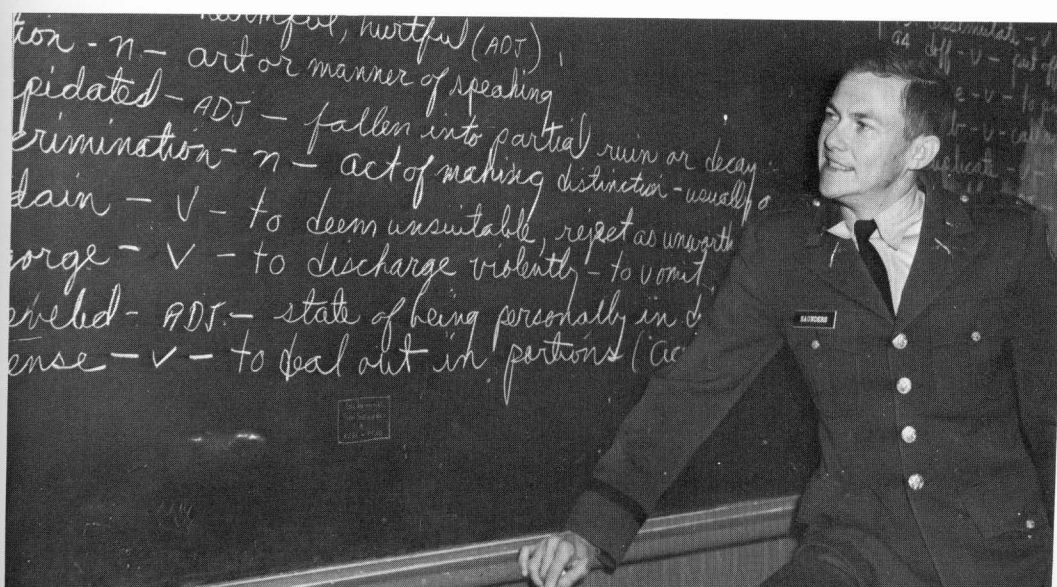 harmful, hurtful (ADJ)
tion - n - art or manner of speaking
pidated - ADJ - fallen into partial ruin or decay
crimination - n - act of making distinction - usually a
dain - V - to deem unsuitable, reject as unworth
gorge - V - to discharge violently - to vomit.
eveled - ADJ. - state of being personally in d
ense - V - to deal out in portions (ac
dissimulate - v
as off - v - put of
e - v - to
b - v -
SAUNDERS